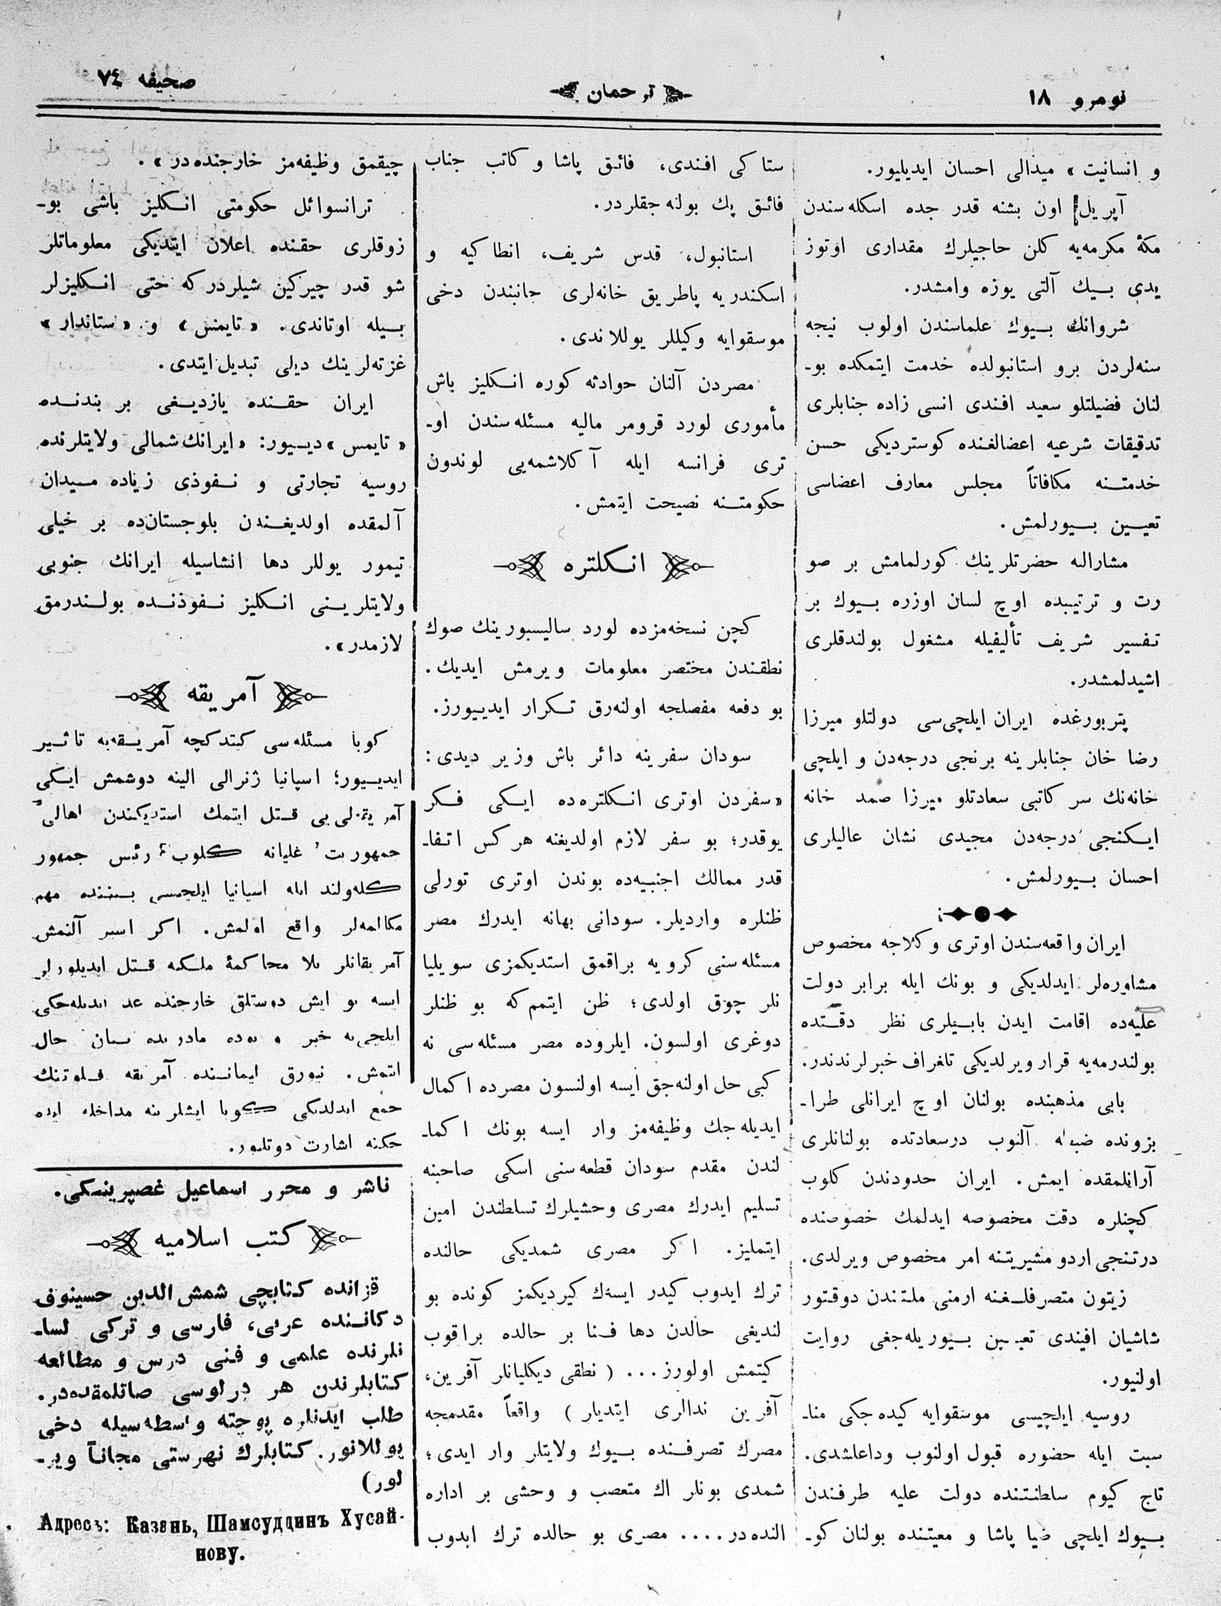 نومرو ١٨
ترجمان
صحیفه ٧٤
و انسانیت» میدالی احسان ایدیلیور.
آپریل اون بشنه قدر جده اسکله‌سندن
مکهٔ مکرمه‌یه کلن حاجیلرك مقداری اوتوز
یدی بیك آلتی یوزه وامشدر.
شروانك بیوك علماسندن اولوب نیجه
سنه‌لردن برو استانبولده خدمت ایتمکده بو-
لنان فضیلتلو سعید افندی انسی زاده جنابلری
تدقیقات شرعیه اعضالغنده کوستردیکی حسن
خدمتنه مکافاتاً مجلس معارف اعضاسی
تعیین بیورلمش.
مشارالیه حضرتلرینك کورلمامش بر صو
رت و ترتیبده اوچ لسان اوزره بیوك بر
تفسیر شریف تألیفیله مشغول بولندقلری
اشیدلمشدر.
پتربورغده ایران ایلچی‌سی دولتلو میرزا
رضا خان جنابلرینه برنجی درجه‌دن و ایلچی
خانه‌نك سر کاتبی سعادتلو میرزا صمد خانه
ایکنجی درجه‌دن مجیدی نشان عالیلری
احسان بیورلمش.
ایران واقعه‌سندن اوتری وکلاجه مخصوص
مشاوره‌لر ایدلدیکی و بونك ایله برابر دولت
علیه‌ده اقامت ایدن بابیلری نظر دقتده
بولندرمه‌یه قرار ویرلدیکی تلغراف خبرلرندندر.
بابی مذهبنده بولنان اوچ ایرانلی طرا-
بزونده ضبط آلنوب درسعادتده بولنانلری
آرانلمقده ایمش. ایران حدودندن کلوب
کچنلره دقت مخصوصه ایدلمك خصوصنده
درتنجی اردو مشیریتنه امر مخصوص ویرلدی.
زیتون متصرفلغنه ارمنی ملتندن دوقتور
شاشیان افیندی تعیین بیوریله‌جغی روایت
اولنیور.
روسیه ایلچیسی موسقوایه کیده‌جکی منا-
سبت ایله حضوره قبول اولنوب وداعلشدی.
تاج کیوم سلطنتنده دولت علیه طرفندن
بیوك ایلچی ضیا پاشا و معیتنده بولنان کو-
ستاکی افندی، فائق پاشا و کاتب جناب
فائق پك بوله‌جقلردر.
استانبول، قدس شریف، انطاکیه و
اسکندریه پاطریق خانه‌لری جانبندن دخی
موسقوایه وکیللر یوللاندی.
مصردن آلنان حوادثه کوره انکلیز باش
مأموری لورد قرومر مالیه مسئله‌سندن او-
تری فرانسه ایله آکلاشمه‌یی لوندون
حکومتنه نصیحت ایتمش.
انکلتره
کچن نسخه‌مزده لورد سالیسبورینك صوك
نطقندن مختصر معلومات ویرمش ایدیك.
بو دفعه مفصلجه اولنه‌رق تکرار ایدییورز.
سودان سفرینه دائر باش وزیر دیدی:
«سفردن اوتری انکلتره‌ده ایکی فکر
یوقدر؛ بو سفر لازم اولدیغنه هرکس اتفا-
قدر ممالك اجنبیه‌ده بوندن اوتری تورلی
ظنلره واردیلر. سودانی بهانه ایدرك مصر
مسئله‌سنی کرویه براقمق استدیکمزی سویلیا
نلر چوق اولدی؛ ظن ایتمم‌که بو ظنلر
دوغری اولسون. ایلروده مصر مسئله‌سی نه
کبی حل اوله‌جق ایسه اولنسون مصرده اکمال
ایدیله‌جك وظیفه‌مز وار ایسه بونك اکما-
لندن مقدم سودان قطعه‌سنی اسکی صاحبنه
تسلیم ایدرك مصری وحشیلرك تسلطندن امین
ایتملیز. اکر مصری شمدیکی حالنده
ترك ایدوب کیدر ایسه‌ك کیردیکمز کونده بو
لندیغی حالدن دها فنا بر حالده براقوب
کیتمش اولورز... (نطقی دیکلیانلر آفرین،
آفرین ندالری ایتدیلر) واقعاً مقدمجه
مصرك تصرفنده بیوك ولایتلر وار ایدی؛
شمدی بونلر اك متعصب و وحشی بر اداره
النده‌در.... مصری بو حالده ترك ایدوب
چیقمق وظیفه‌مز خارجنده‌در».
ترانسوائل حکومتی انکلیز باشی بو-
زوقلری حقنده اعلان ایتدیکی معلوماتلر
شو قدر چیرکین شیلردرکه حتی انکلیزلر
بیله اوتاندی. «تایمس» و «ستاندار»
غزته‌لرینك دیلی تبدیل ایتدی.
ایران حقنده یازدیغی بر بندنده
«تایمس» دییور: «ایرانك شمالی ولایتلرنده
روسیه تجارتی و نفوذی زیاده میدان
آلمقده اولدیغندن بلوجستان‌ده بر خیلی
تیمور یوللر دها انشاسیله ایرانك جنوبی
ولایتلرینی انکلیز نفوذنده بولندرمق
لازمدر».
آمریقه
کوبا مسئله‌سی کیتدکچه آمریقه‌یه تاثیر
ایدییور؛ اسپانیا ژنرالی الینه دوشمش ایکی
آمریقه‌لی‌یی قتل ایتمك استدیکندن اهالی
جمهوریت غلیانه کلوب رئس جمهور
کله‌ولند ایله اسپانیا ایلچیسی بیننده مهم
مکالمه‌لر واقع اولمش. اکر اسیر آلنمش
آمریقانلر بلا محاکمهٔ ملکیه قتل ایدیلورلر
ایسه بو ایش دوستلق خارجنده عد ایدیله‌جکی
ایلچی‌یه خبر و بوده مادریده بیان حال
ایتمش. نیورق لیماننده آمریقه فلوتنك
جمع ایدلدیکی کوبا ایشلرینه مداخله ایده
جکنه اشارت دوتلیور.
ناشر و محرر اسماعیل غصپرینسکی.
کتب اسلامیه
قزانده کتابچی شمش الدین حسینوف
دکاننده عربی، فارسی و ترکی لسا-
نلرنده علمی و فنی درس و مطالعه
کتابلرندن هر درلوسی صاتلمقده‌در.
طلب ایدنلره پوچته واسطه‌سیله دخی
یوللانور. کتابلرك فهرستی مجاناً ویر-
لور)
Адресъ: Казань, Шамсуддинъ Хусай-
нову.